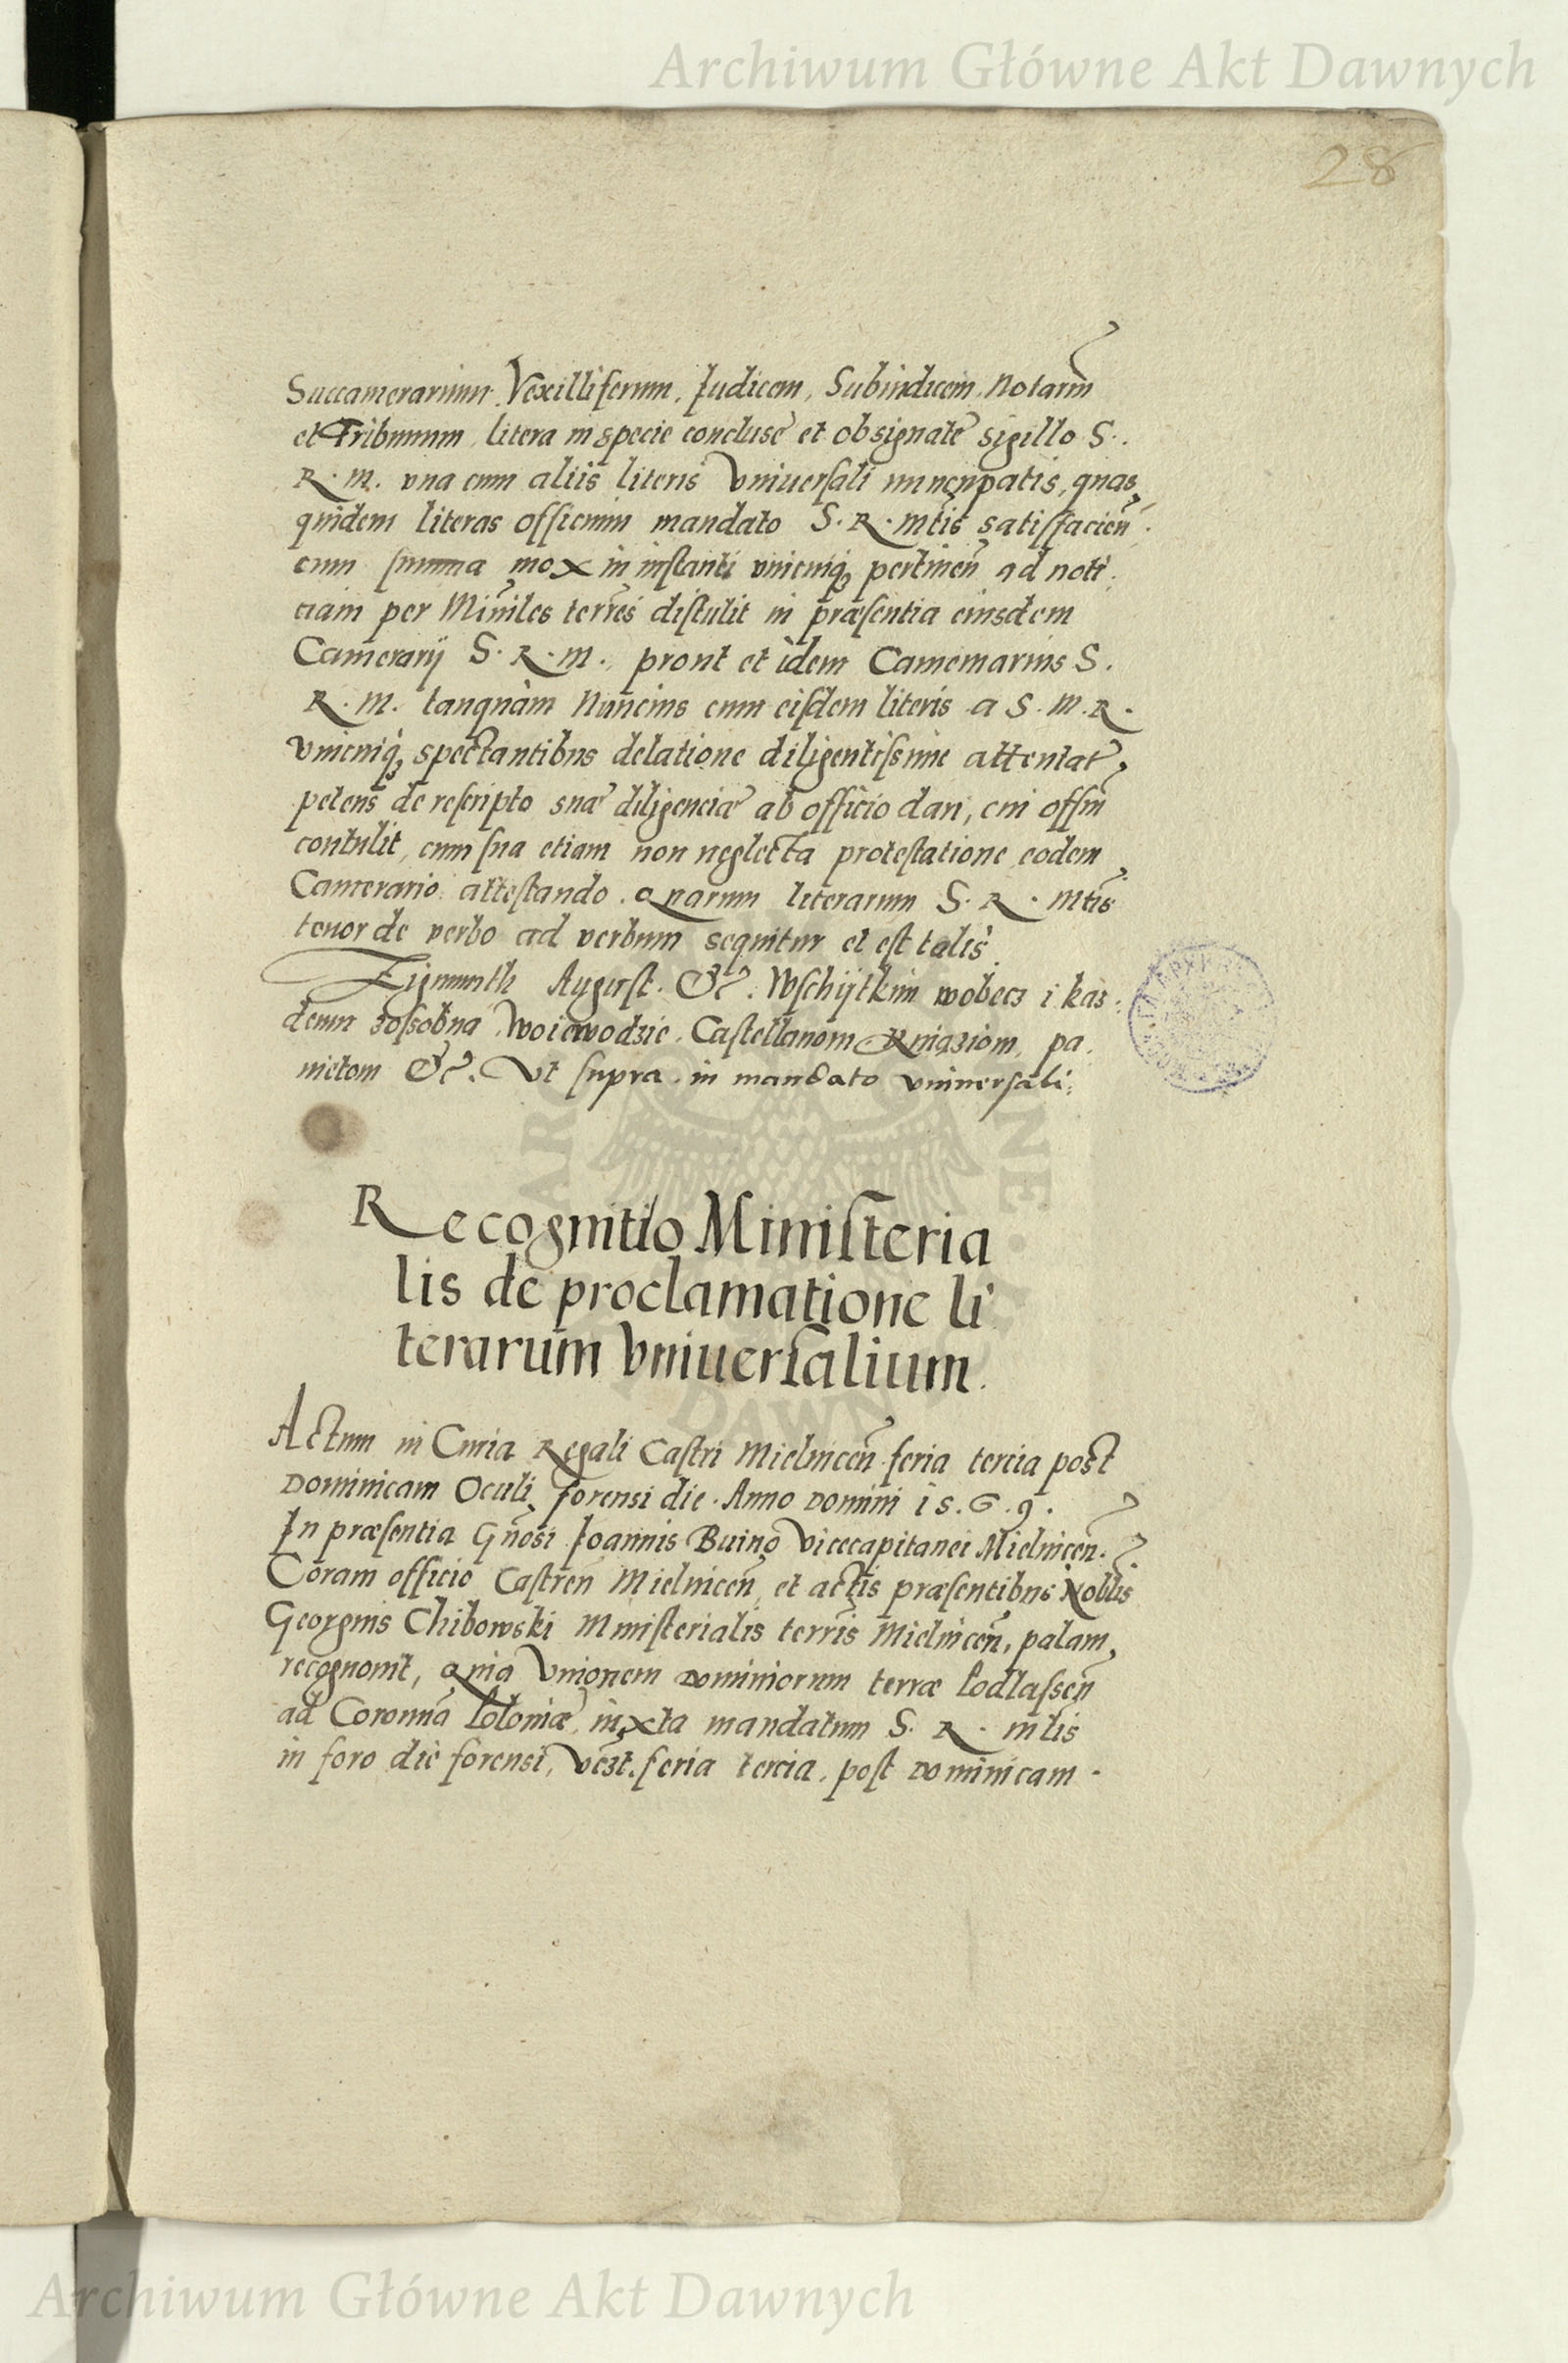 Archiwum Główne Akt Dawnych
28
Succamerarium, Vexilliferum, Judicem, Subiudicem, Notarm̃
et Tribunum, litera in specie conclusę et obsignatę sigillo S.
R. M. vna cum aliis literis vniuersali nuncupatis, quas
quidem literas officium mandato S. R. Mt̃is satisfacien̄
cum summa mox in instanti vnicuiq3 pertinen̄ ad noti
ciam per Miñiles terres̃ distulit in præsentia eiusdem
Camerarij S. R. M. prout et idem Camemarius S.
R. M. tanquàm Nuncius cum eisdem literis a S. M. R.
vnicuiq3 spectantibus delatione diligentissime attentat,
petens de rescripto suæ diligenciæ ab officio dari, cui offm̃
contulit, cum sua etiam non neglecta protestatione eodem
Camerario attestando. Quarum literarum S. R. Mt̃is
tenor de verbo ad verbum sequitur et est talis.
Zigmunth August. &c. Wschijtkim wobecz i kaz
demu zossobna Woiewodzie. Castellanom Kniaziom, pa
nietom &c. Vt supra in mandato vniuersali.
Recognitio Ministeria
lis de proclamatione li
terarum Vniuersalium.
Actum in Curia Regali Castri Mielnicen̄ feria tercia post
Dominicam Oculi, forensi die. Anno Domini 1 5. 6. 9.
In præsentia Gñosi Joannis Buino Vicecapitanei Mielnicen̄.
Coram officio Castren̄ Mielnicen̄, et actis præsentibus Nobilis
Georgius Chibowski Ministerialis terris̃ Mielnicen̄, palam
recognouit, Quia Vnionem Dominiorum terræ Podlassen̄
ad Coronnã Poloniæ, iuxta mandatum S. R. Mtis
in foro die forensi, vczt. feria tercia, post Dominicam
Archiwum Główne Akt Dawnych